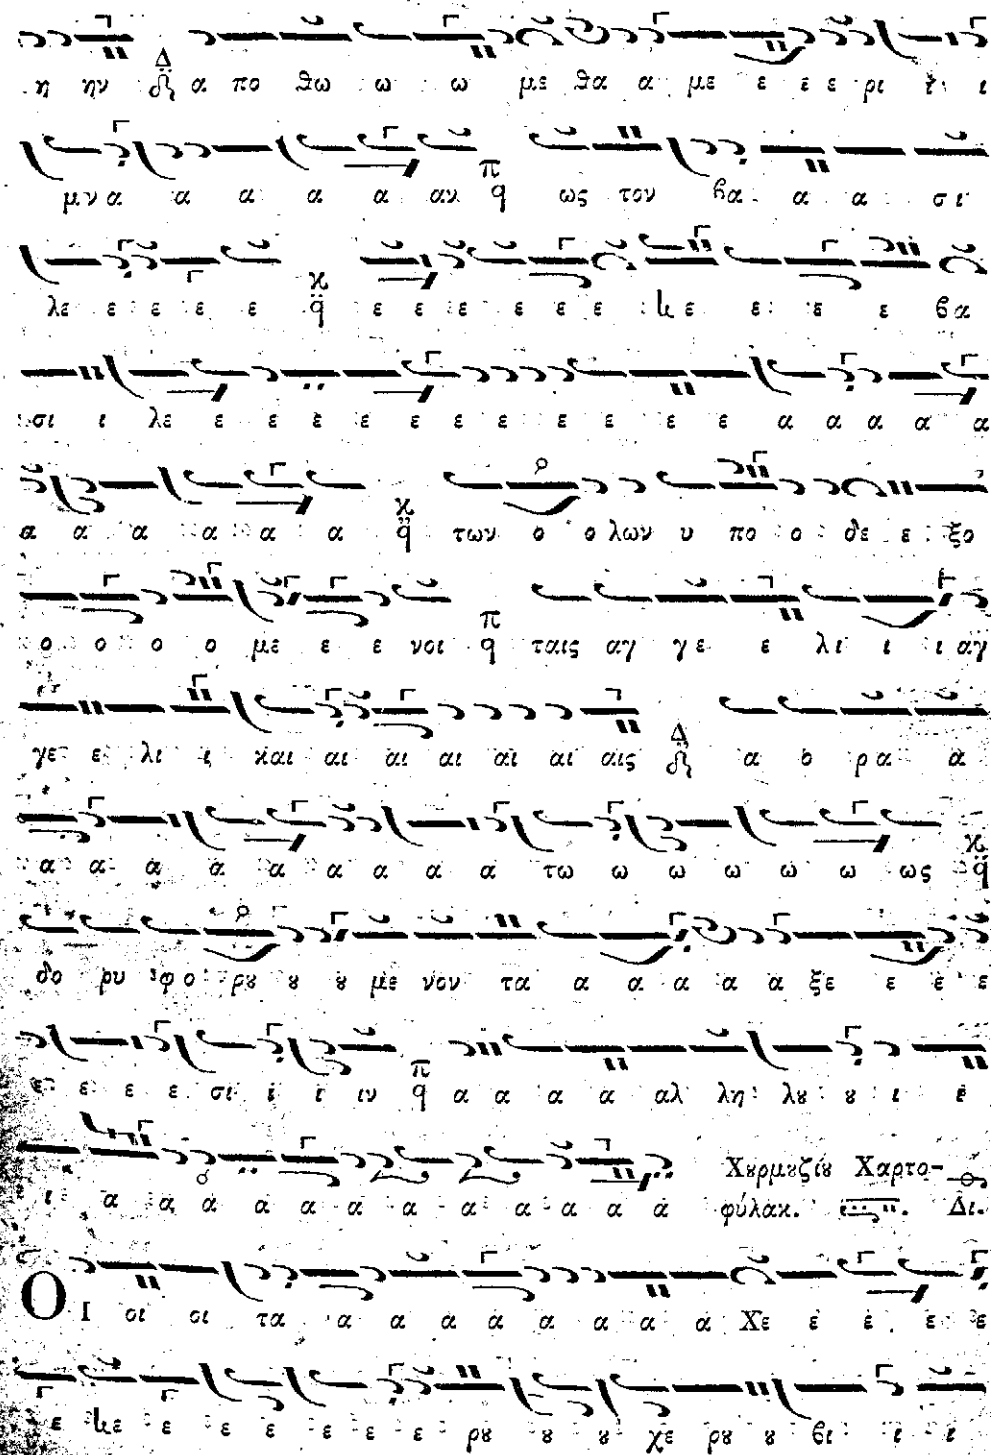 η ην Δ α πο θω ω ω με θα α με ε ε ε ρι ι ι
μν α α α α α αν π ϥ ως τον βα α α σι
λε ε ε ε ε κ ϥ ε ε ε ε ε ε κε ε ε ε βα
σι ι λε ε ε ε ε ε ε ε ε ε ε ε α α α α α
α α α α α α κ ϥ των ο ο λων υ πο ο δε ε ξο
ο ο ο ο με ε ε νοι π ϥ ταις αγ γε ε λι ι ι αγ
γε ε λι ι και αι αι αι αι αι αις Δ α ο ρα α
α α α α α α α α α τω ω ω ω ω ω ως κ ϥ
δο ρυ φο ρȣ ȣ ȣ με νον τα α α α α α ξε ε ε ε
ε ε ε ε σι ι ι ιν π ϥ α α α α αλ λη λȣ ȣ ι ι
ι α α α α α α α α α α α α Χȣρμȣζίȣ Χαρτο-
φύλακ. Δι.
Οι οι οι τα α α α α α α α α Χε ε ε ε ε
ε κε ε ε ε ε ε ε ρȣ ȣ ȣ χε ρȣ ȣ βι ι ι